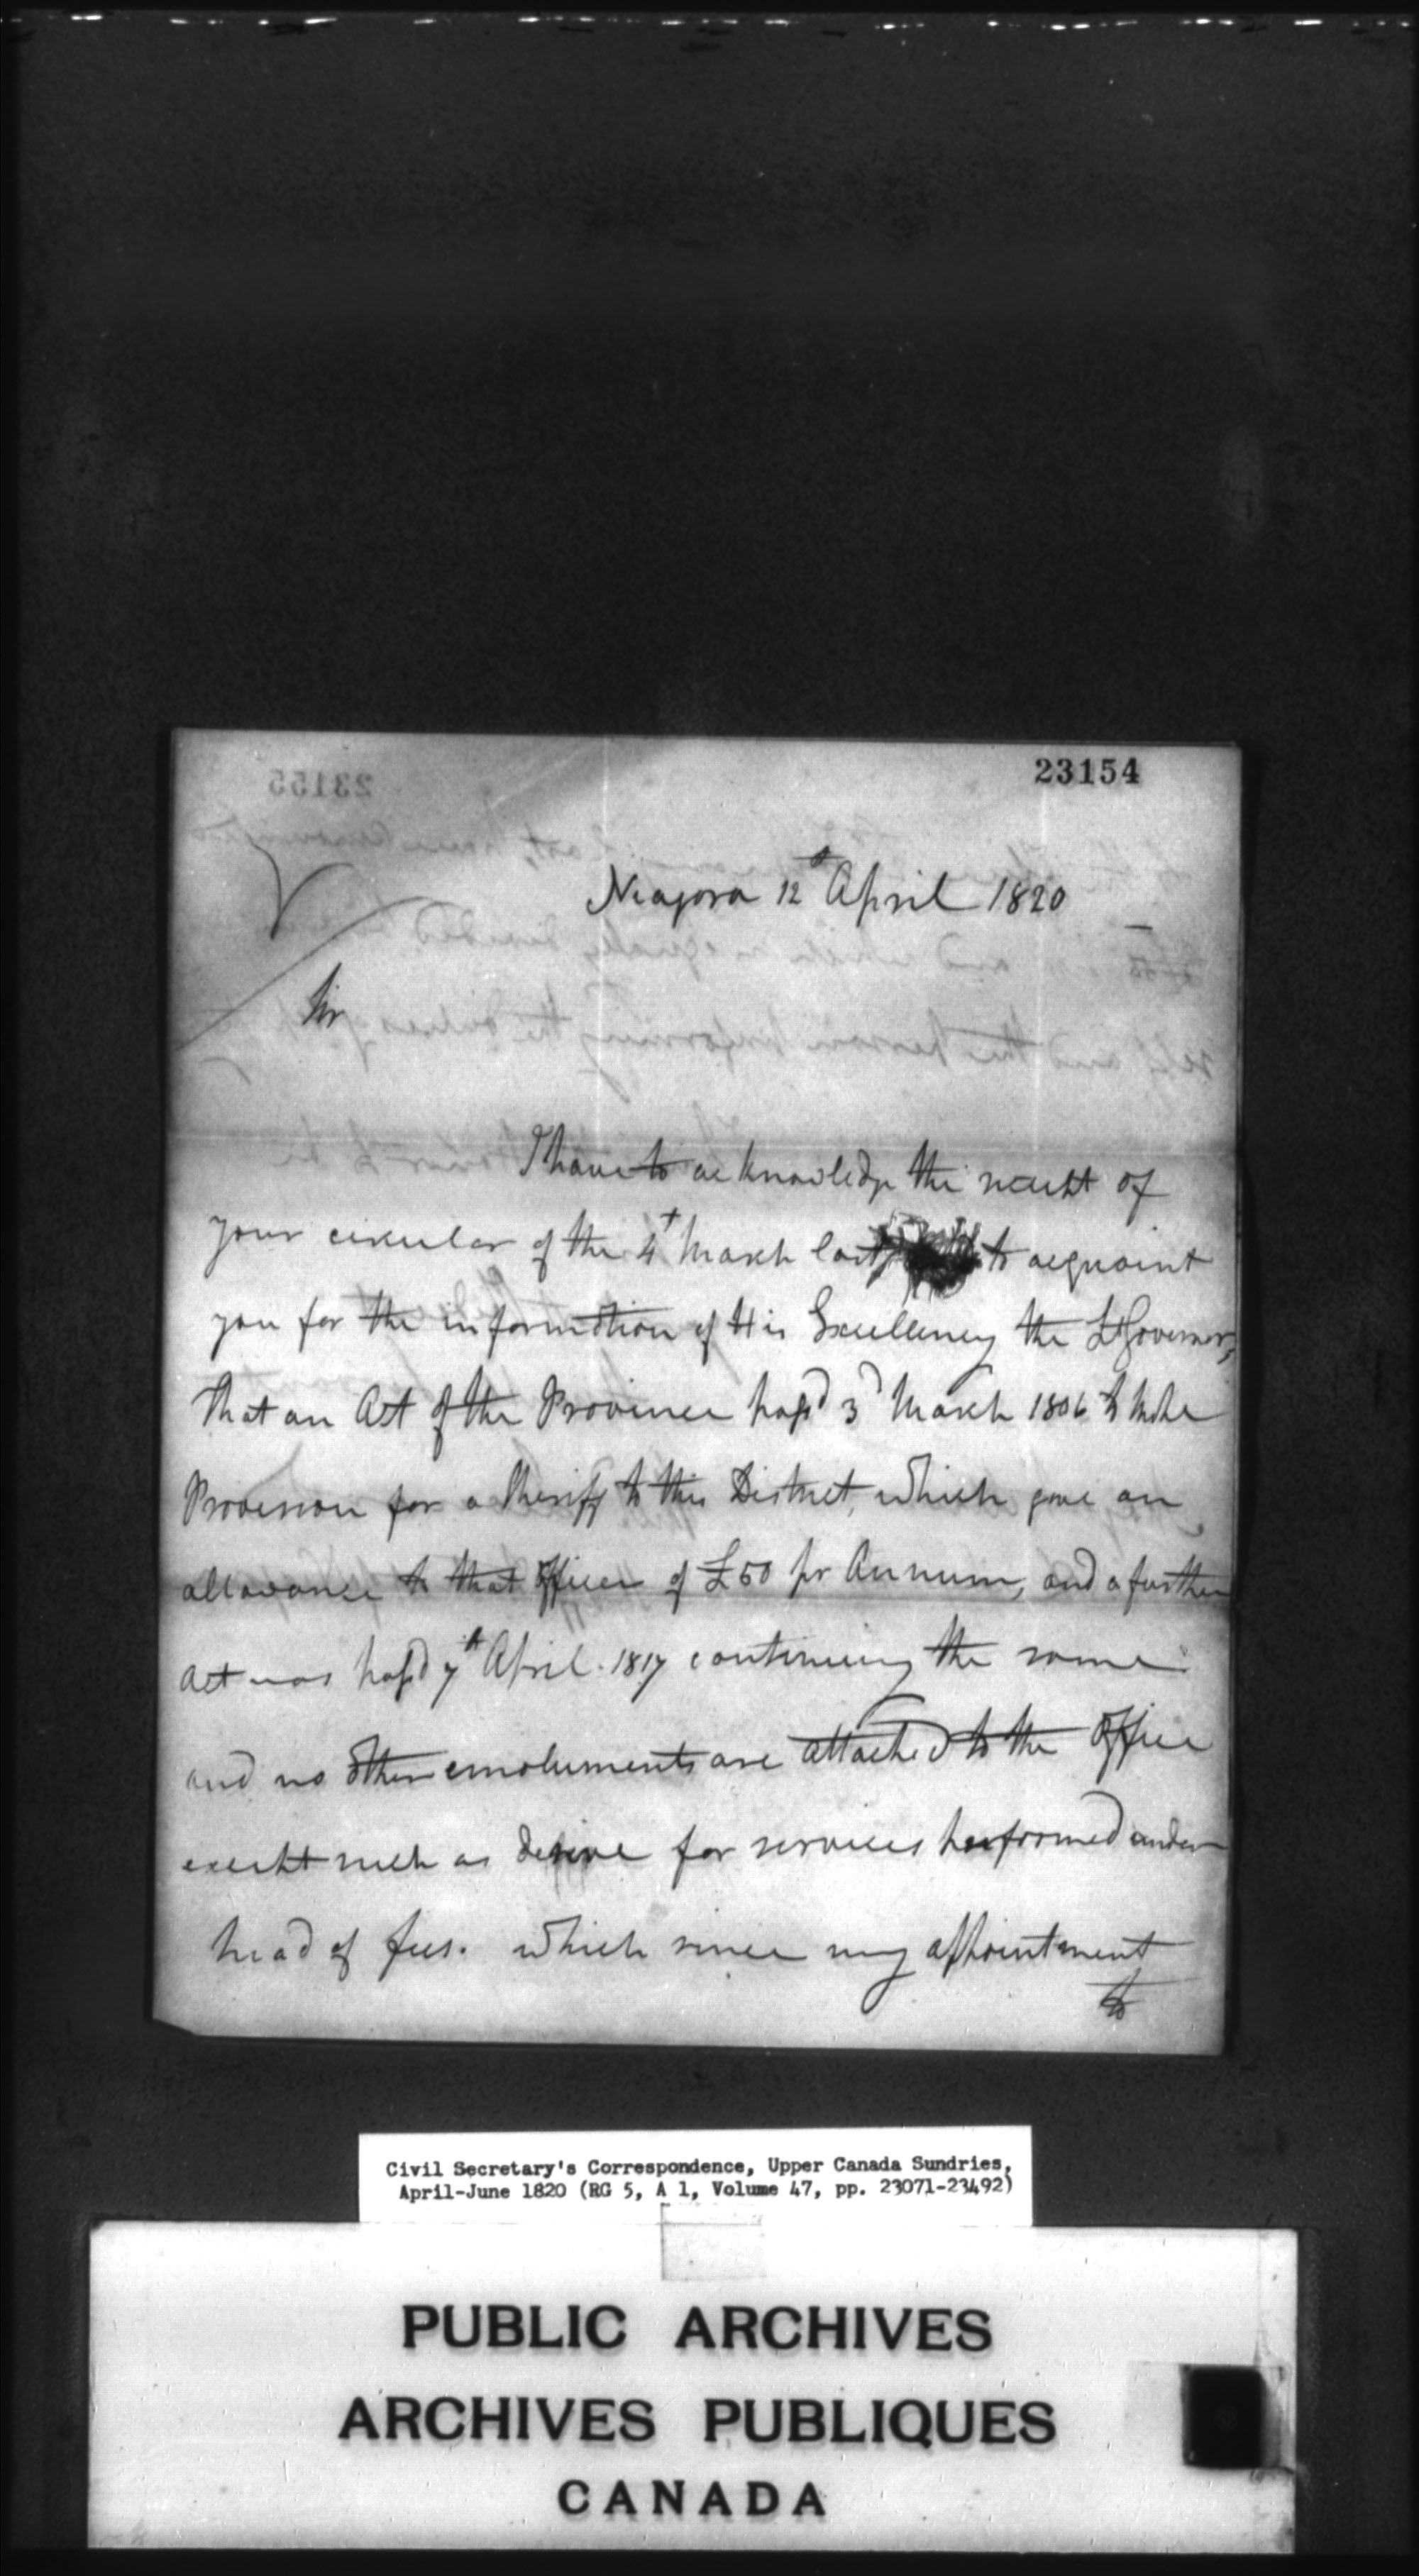 23154
23155
Niagara 12th April 1820
Sir
I have to acknowledge the receipt of
your circular of the 4th March last, to acquaint
you for the information of His Excellency the Lt Governor,
that an Act of the Province pass'd 3d March 1806 to make
Provision for a Sheriff to this District, which gave an
allowance to that Officer of £50 pr Annum, and a further
Act was pass'd 7th April 1817 continuing the same
and no other emoluments are attached to the Office
except such as derive for services performed under
head of fees. which since my appointment
to
Civil Secretary's Correspondence, Upper Canada Sundries,
April-June 1820 (RG 5, A 1, Volume 47, pp. 23071-23492)
PUBLIC ARCHIVES
ARCHIVES PUBLIQUES
CANADA